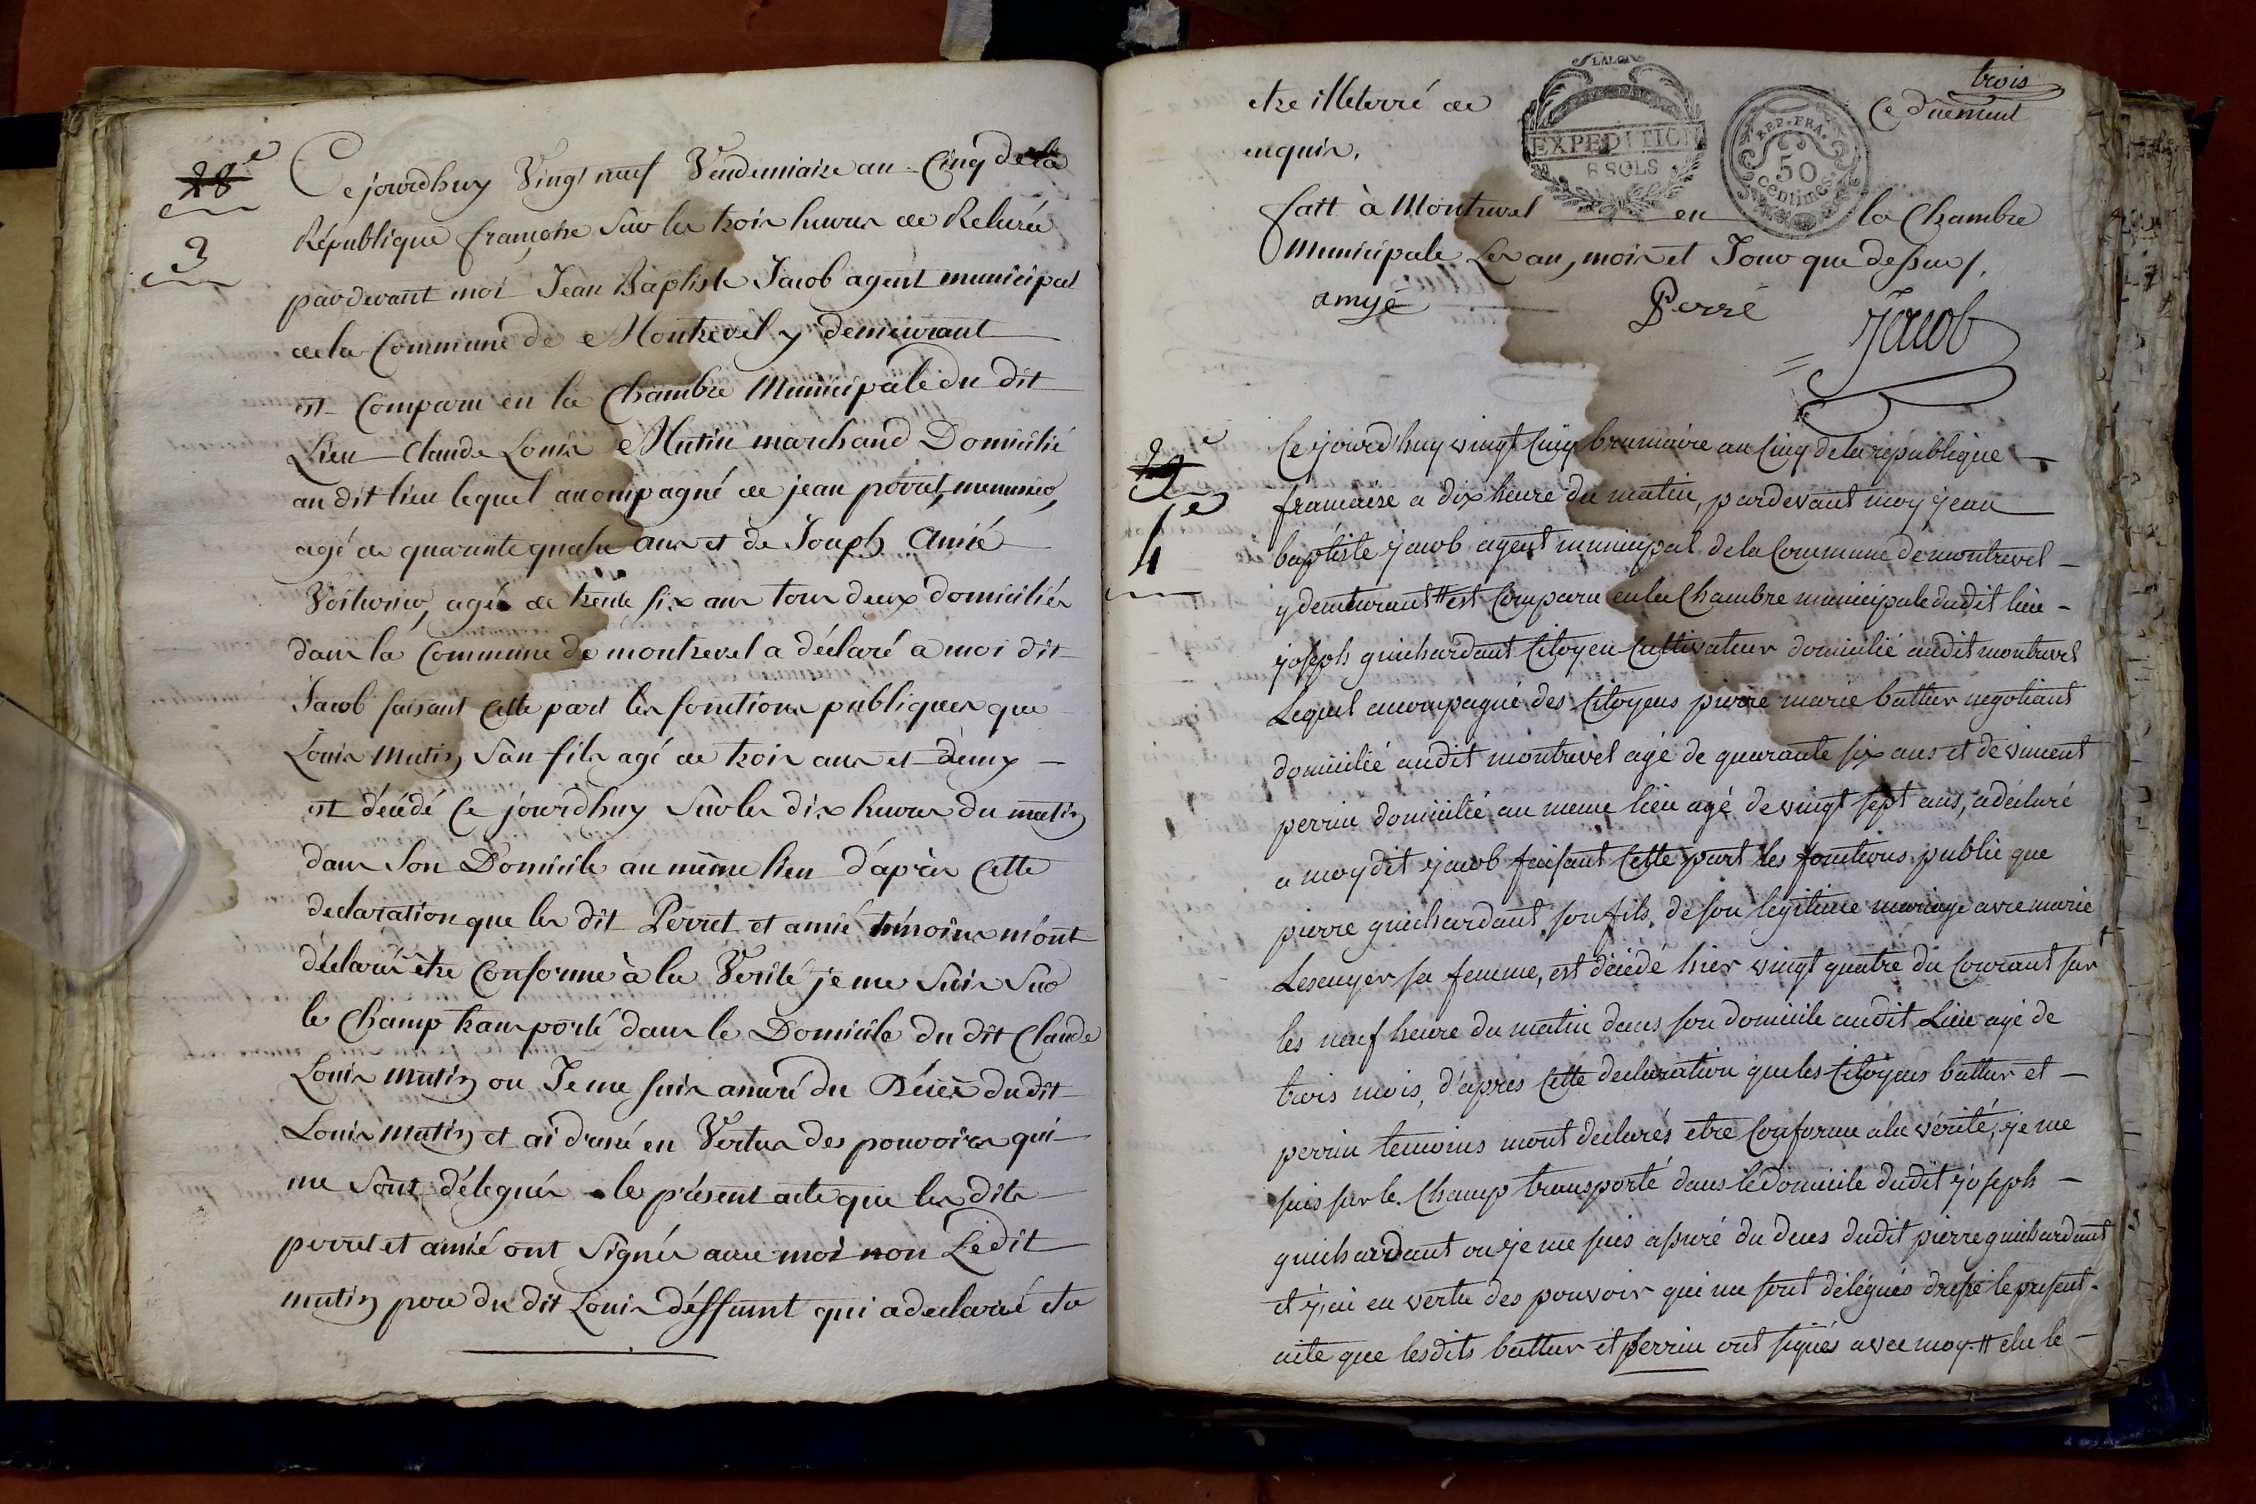 28e
3
Ce jourdhuy Vingt neuf Vendemiaire an Cinq de la
République française Sur les trois heures de Relevée
pardevant moi Jean Baptiste Jacob agent municipal
de la Commune de Montrevel y demeurant
est Comparu en la Chambre Municipale du dit
Lieu Claude Louis Mutin marchand Domicilié
au dit lieu lequel accompagné de jean perret
agé de quarante quatre ans et de Joseph Amié
Voiturier, agé de trente six ans tous deux domiciliés
dans la Commune de montrevel a déclaré a moi dit
Jacob faisant cette part les fonctions publiques que
Louis Mutin Son fils agé de trois ans et demy
est décédé Ce jourdhuy Sur les dix heures du matin
dans Son Domicile au même lieu d'après Cette
declaration que les dit Perret et amié témoins m'ont
déclarés être Conforme à la Verité je me Suis Sur
le Champ transporté dans le Domicile du dit Claude
Louis mutin ou Je me suis assuré du Décès du dit
Louis mutin et ai dressé en Vertus des pouvoirs qui
me Sont délegués le présent acte que les dits
perret et amié ont Signés avec moi non Le dit
mutin pere du dit Louis déffunt qui a declaré
trois
etre illeterré de Ce duement
enquis.
LA LOI
EXPEDITION
8 SOLS
REP. FRA.
50
Centimes
fait à Montrevel en la Chambre
Municipale Les an, mois et Jour que dessus.
amyé Perré Jacob
4e
Ce jourd'huy vingt Cinq brumaire an Cinq de la république
francaise a dix heure du matin, pardevant moy jean
baptiste jacob agent municipal de la Commune de montrevel
y demeurant # est Comparu en la Chambre municipale dudit lieu
joseph guichardant Citoyen Cultivateur domicilié audit montrevel
Lequel accompagné des Citoyens pierre marie buttur negotiant
domicilié audit montrevel agé de quarante six ans et de vincent
perrin domicilié au meme lieu agé de vingt sept ans, a déclaré
a moy dit jacob faisant Cette part les fonctions public que
pierre guichardant son fils, de son légitime mariage avec marie
Lescuyer sa femme, est décédé hier vingt quatre du Courant sur
les neuf heure du matin dans son domicile audit Lieu agé de
trois mois, d'apres Cette declaration que les Citoyens buttur et
perrin temoins mont declarés etre Conforme a la vérité, je me
suis sur le Champ transporté dans le domicile dudit joseph
guichardant ou je me suis assuré du deces dudit pierre guichardant
et j'ai en vertu des pouvoir qui me sont délégués dressé le present
acte que lesdits buttur et perrin ont signés avec moy #